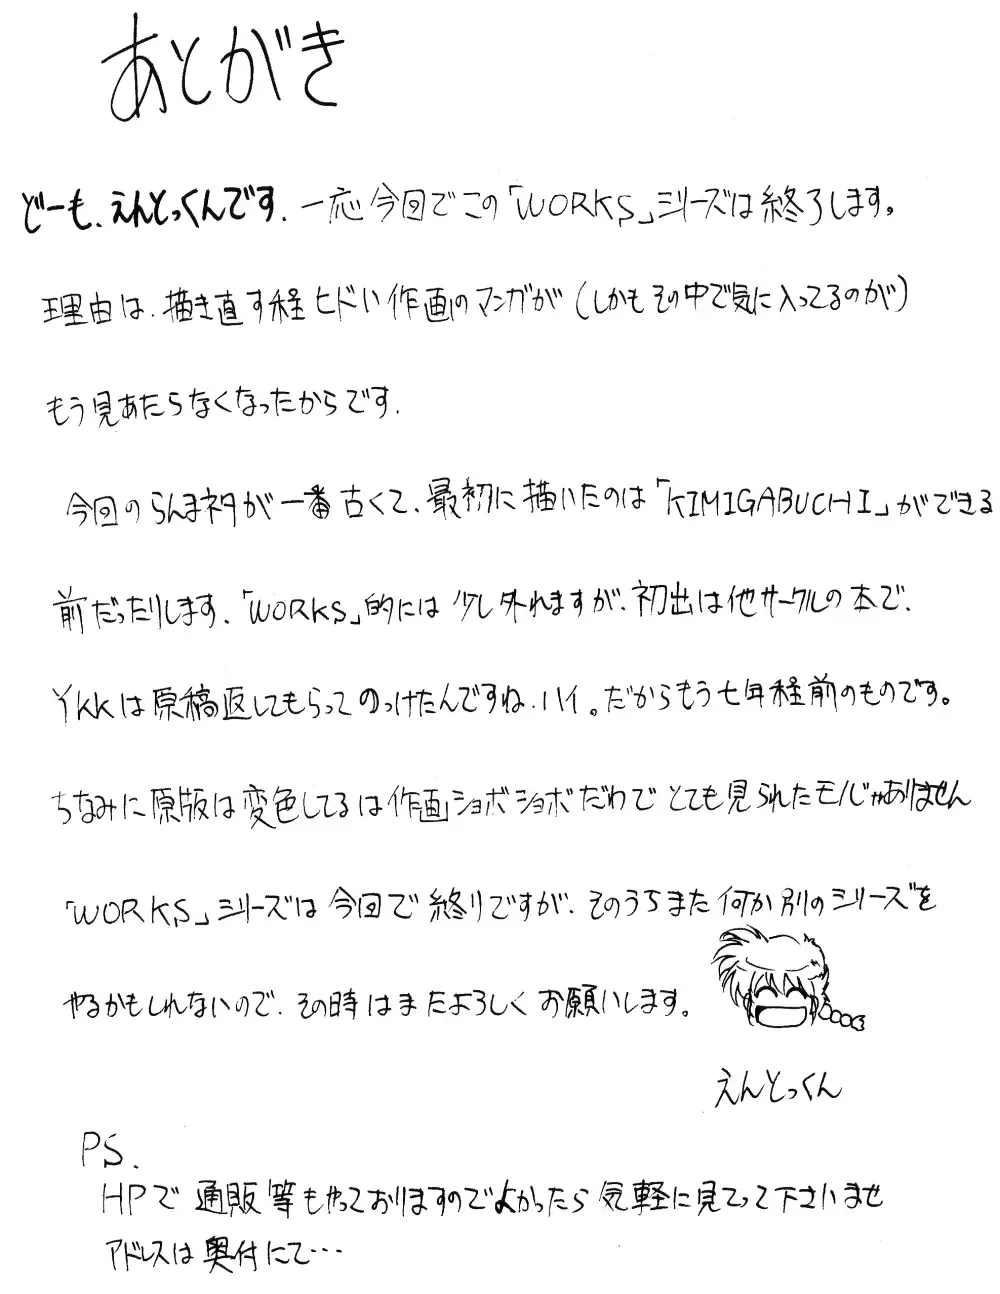 あとがき
どーも、えんとっくんです。一応今回でこの「WORKS」シリーズは終了します。
理由は、描き直す程ヒドい作画のマンガが(しかもその中で気に入ってるのが)
もう見あたらなくなったからです。
今回のらんまネタが一番古くて、最初に描いたのは「KIMIGABUCHI」ができる
前だったりします。「WORKS」的には少し外れますが、初出は他サークルの本で、
Ykkは原稿返してもらってのっけたんですね、ハイ。だからもう七年程前のものです。
ちなみに原版は変色してるは作画ショボショボだわでとても見られたモノじゃありません
「WORKS」シリーズは今回で終りですが、そのうちまた何か別のシリーズを
やるかもしれないので、その時はまたよろしくお願いします。
えんとっくん
PS.
HPで通販等もやっておりますのでよかったら気軽に見てって下さいませ
アドレスは奥付にて…